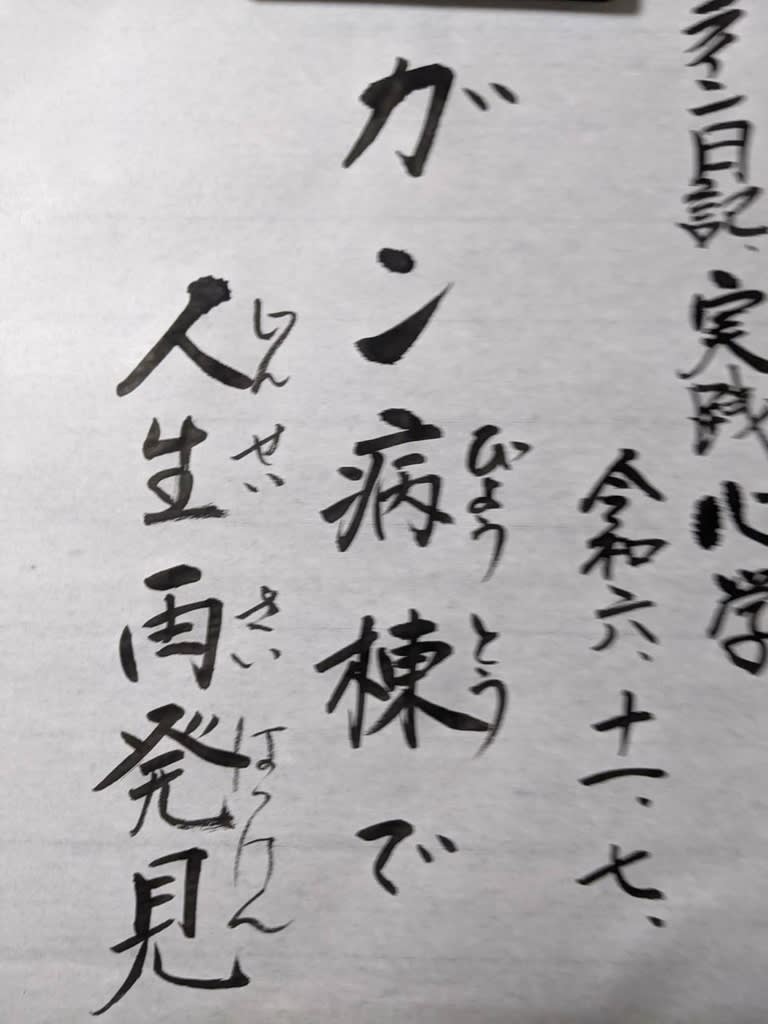 ライン日記、実践心学
令和六、十一、七、
びょうとう
ガン病棟で
じんせいさいはっけん
人生再発見